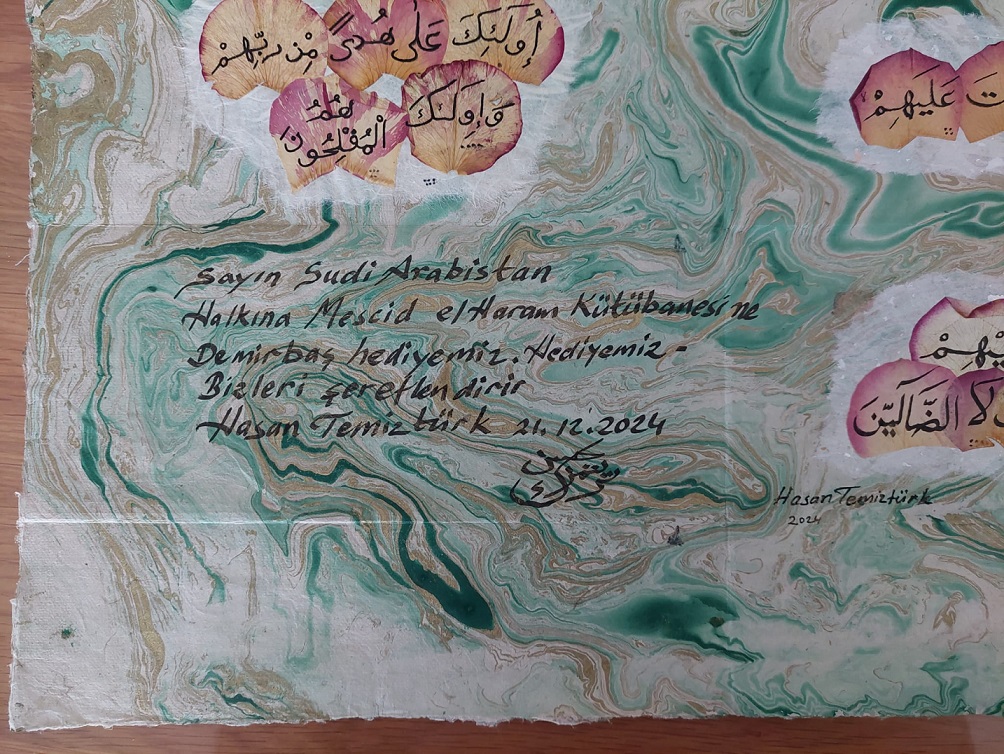 أُولَئِكَ عَلَى هُدًى مِنْ رَبِّهِمْ
وَأُولَئِكَ هُمُ
الْمُفْلِحُونَ
عَلَيْهِمْ
يْهِمْ
الضَّالِّينَ
Sayın Sudi Arabistan
Halkına Mescid el Haram Kütübanesine
Demirbaş hediyemiz. Hediyemiz-
Bizleri şereflendirir
Hasan Temiztürk 21.12.2024
Hasan Temiztürk
2024